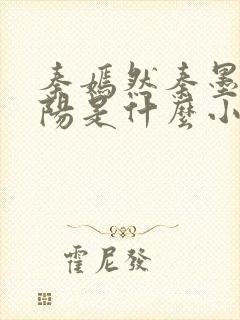 秦嫣然秦墨
陽是什麼小
霍尼發